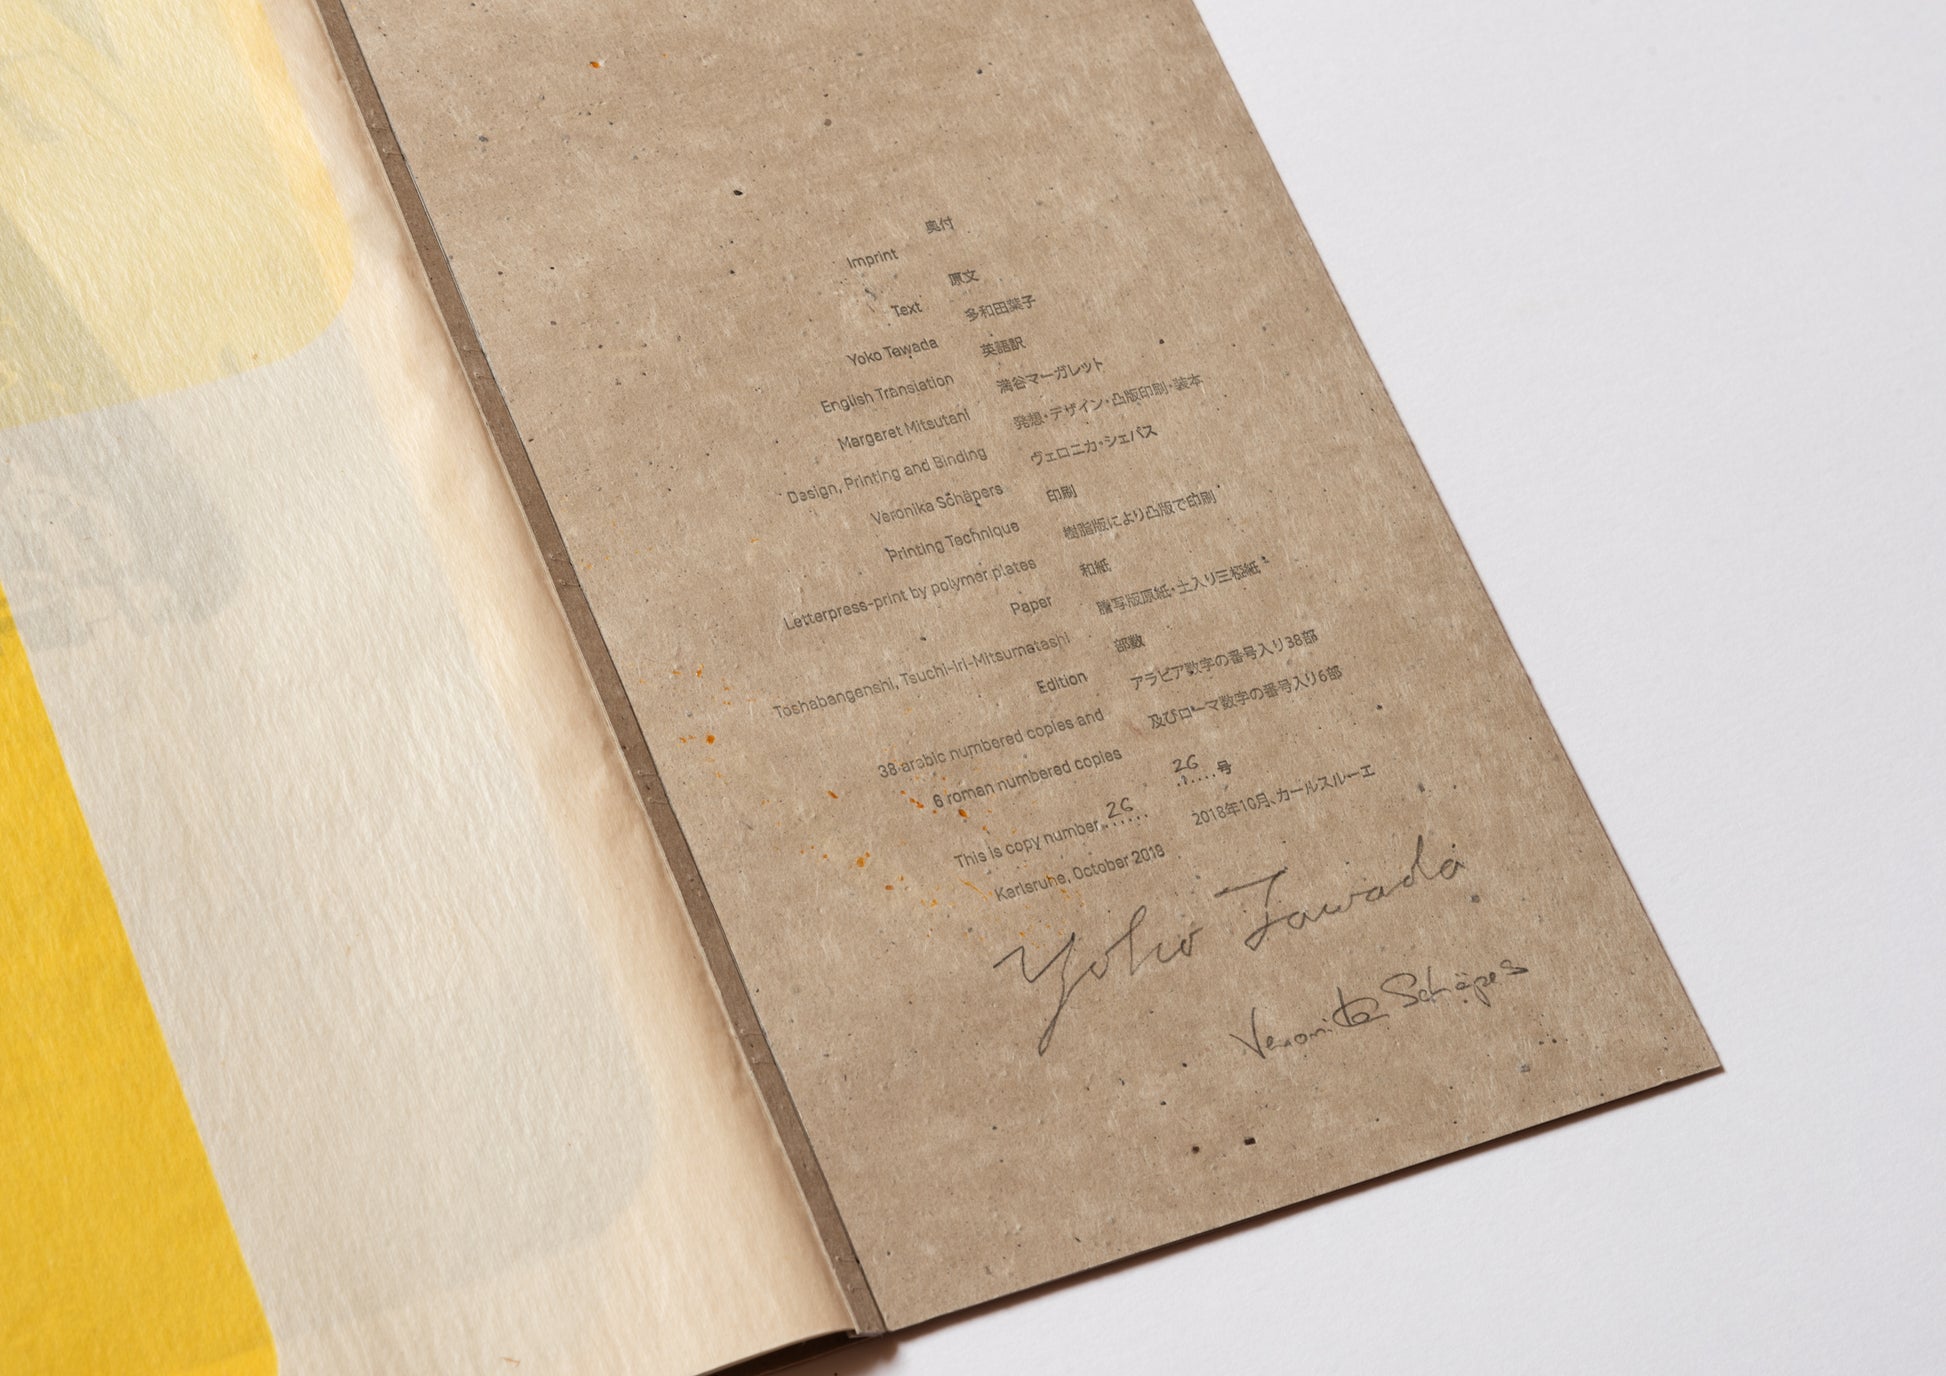 奥付
Imprint
原文
Text
多和田葉子
Yoko Tawada
英語訳
English Translation
満谷マーガレット
Margaret Mitsutani
発想・デザイン・凸版印刷・装本
Design, Printing and Binding
ヴェロニカ・シェパス
Veronika Schäpers
印刷
Printing Technique
樹脂版により凸版で印刷
Letterpress-print by polymer plates
和紙
Paper
謄写版原紙・土入り三椏紙
Toshabangenshi, Tsuchi-iri-Mitsumatashi
部数
Edition
アラビア数字の番号入り38部
38 arabic numbered copies and
及びローマ数字の番号入り6部
6 roman numbered copies
26 号
This is copy number 26
2018年10月、カールスルーエ
Karlsruhe, October 2018
Yoko Tawada
Veronika Schäpers